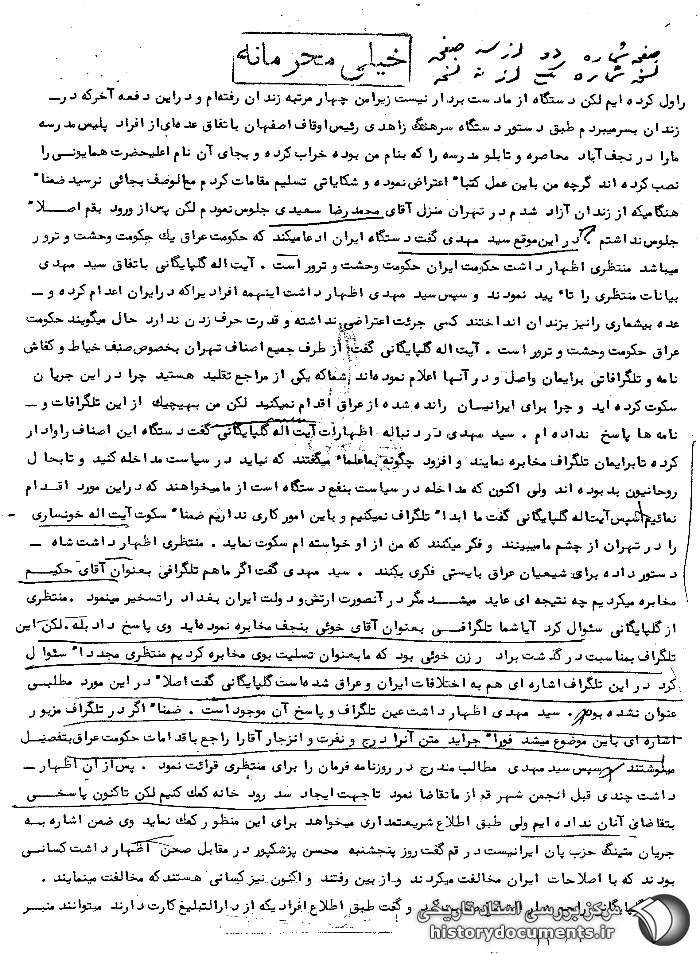 صفحه شماره دو از سه صفحه
نسخه شماره از نسخه
خیلی محرمانه
راول کرده ایم لکن دستگاه از ما دست بردار نیست زیرا من چهار مرتبه زندان رفته‌ام و در این دفعه آخر که در ــ
زندان بسر میبردم طبق دستور دستگاه سرهنگ زاهدی رئیس اوقاف اصفهان باتفاق عده‌ای از افراد پلیس مدرسه
ما را در نجف آباد محاصره و تابلو مدرسه را که بنام من بوده خراب کرده و بجای آن نام اعلیحضرت همایونی را
نصب کرده اند گرچه من باین عمل کتبا" اعتراض نموده و شکایاتی تسلیم مقامات کردم مع الوصف بجائی نرسید ضمنا"
هنگامیکه از زندان آزاد شدم در تهران منزل آقای محمد رضا سعیدی جلوس نمودم لکن پس از ورود بقم اصلا"
جلوس نداشتم . در این موقع سید مهدی گفت دستگاه ایران ادعا میکند که حکومت عراق یک حکومت وحشت و ترور
میباشد منتظری اظهار داشت حکومت ایران حکومت وحشت و ترور است . آیت اله گلپایگانی باتفاق سید مهدی
بیانات منتظری را تاء یید نمودند و سپس سید مهدی اظهار داشت اینهمه افراد یرا که در ایران اعدام کرده و ــ
عده بیشماری را نیز بزندان انداختند کسی جرئت اعتراضی نداشته و قدرت حرف زدن ندارد حال میگویند حکومت
عراق حکومت وحشت و ترور است . آیت اله گلپایگانی گفت از طرف جمیع اصناف تهران بخصوص صنف خیاط و کفاش
نامه و تلگرافاتی برایمان واصل و در آنها اعلام نموده‌اند شما که یکی از مراجع تقلید هستید چرا در این جریان
سکوت کرده اید و چرا برای ایرانیان رانده شده از عراق اقدام نمیکنید لکن من بهیچیک از این تلگرافات و ــ
نامه ها پاسخ نداده ام . سید مهدی در دنباله اظهارات آیت اله گلپایگانی گفت دستگاه این اصناف را وادار
کرده تا برایمان تلگراف مخابره نمایند و افزود چگونه بماعلماء میگفتند که نباید در سیاست مداخله کنید و تابحال
روحانیون بد بوده اند ولی اکنون که مداخله در سیاست بنفع دستگاه است از ما میخواهند که در این مورد اقدام
نمائیم سپس آیت اله گلپایگانی گفت ما ابدا" تلگراف نمیکنیم و باین امور کاری نداریم ضمنا" سکوت آیت اله خونساری
را در تهران از چشم ما میبینند و فکر میکنند که من از او خواسته ام سکوت نماید . منتظری اظهار داشت شاه ــ
دستور داده برای شیعیان عراق بایستی فکری بکنند . سید مهدی گفت اگر ما هم تلگرافی بعنوان آقای حکیم
مخابره میکردیم چه نتیجه ای عاید میشد مگر در آنصورت ارتش و دولت ایران بغداد را تسخیر مینمود . منتظری
از گلپایگانی سئوال کرد آیا شما تلگرافی بعنوان آقای خوئی بنجف مخابره نموده‌اید وی پاسخ داد بله . لکن این
تلگراف بمناسبت در گذشت برادر زن خوئی بود که ما بعنوان تسلیت بوی مخابره کردیم منتظری مجددا" سئوال
کرد در این تلگراف اشاره ای هم به اختلافات ایران و عراق شده است گلپایگانی گفت اصلا" در این مورد مطلبی
عنوان نشده بود . سید مهدی اظهار داشت عین تلگراف و پاسخ آن موجود است . ضمنا" اگر در تلگراف مزبور
اشاره ای باین موضوع میشد فورا" جراید متن آنرا درج و نفرت و انزجار آقا را راجع باقدامات حکومت عراق بتفصیل
مینوشتند سپس سید مهدی مطالب مندرج در روزنامه فرمان را برای منتظری قرائت نمود . پس از آن اظهار ــ
داشت چندی قبل انجمن شهر قم از ما تقاضا نمود تا جهت ایجاد سد رود خانه کمک کنیم لکن تاکنون پاسخی
بتقاضای آنان نداده ایم ولی طبق اطلاع شریعتمداری میخواهد برای این منظور کمک نماید وی ضمن اشاره به
جریان متینگ حزب پان ایرانیست در قم گفت روز پنجشنبه محسن پزشکپور در مقابل صحن اظهار داشت کسانی
بودند که با اصلاحات ایران مخالفت میکردند و از بین رفتند و اکنون نیز کسانی هستند که مخالفت مینمایند .
گلپایگانی و گفت طبق اطلاع افراد یکه از دارالتبلیغ کارت دارند میتوانند منبر
مرکز بررسی اسناد تاریخی
historydocuments.ir